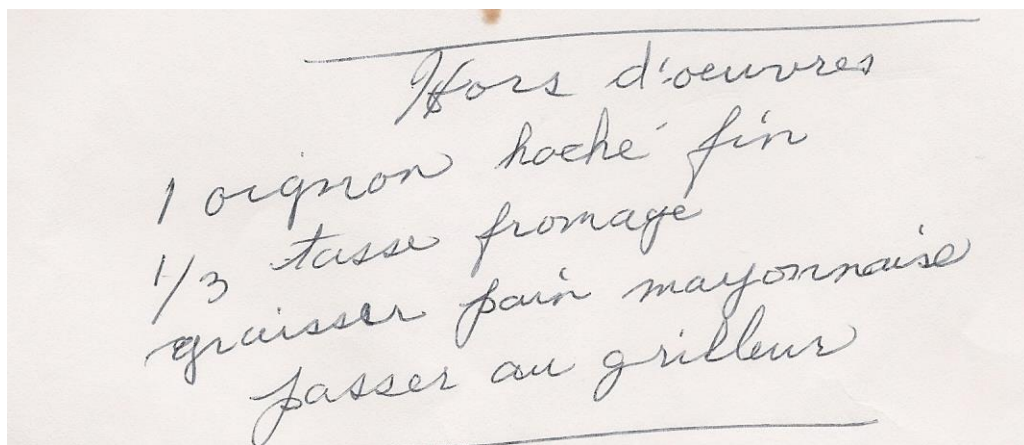 Hors d'oeuvres
1 oignon haché fin
1/3 tasse fromage
graisser pain mayonnaise
passer au grilleur